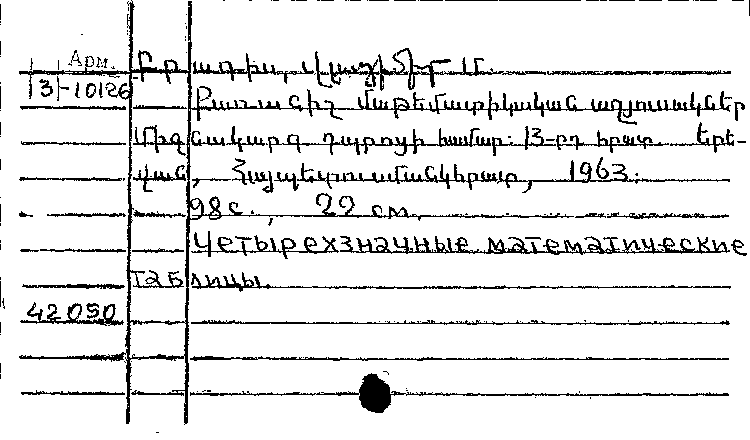 Арм. Բրադիս, Վլադիմիր Մ.
13-10126
Քառանիշ մաթեմատիկական աղյուսակներ
Միջնակարգ դպրոցի համար: 13-րդ հրատ. Երե-
վան, Հայպետուսմանկհրատ, 1963.
98 с., 22 см.
Четырехзначные математические
таблицы.
42050